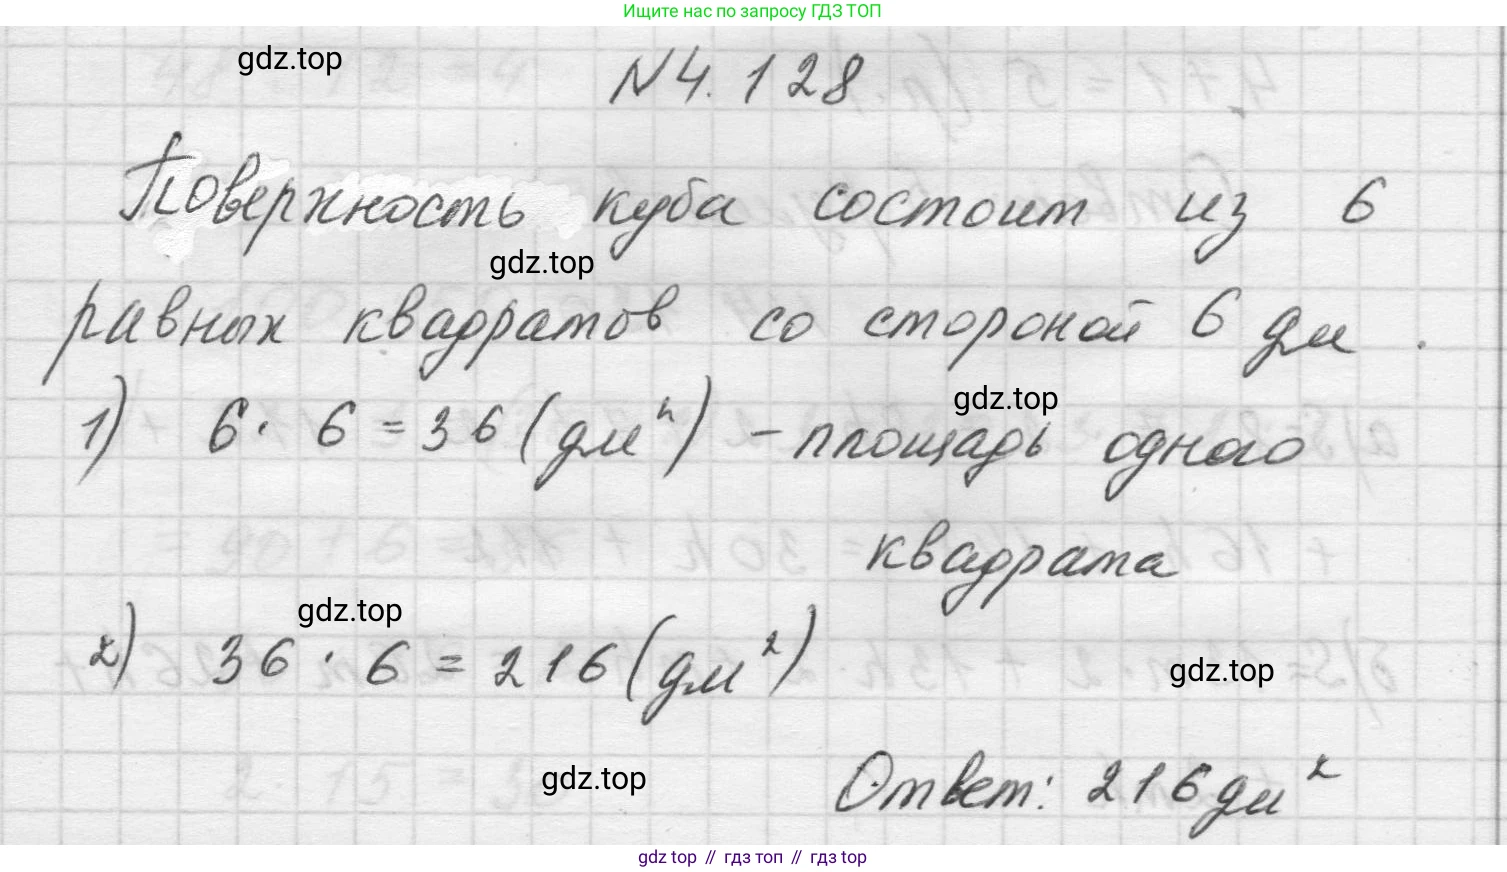 Ищите нас по запросу ГДЗ ТОП
gdz.top
№4.128
Поверхность куба состоит из 6
gdz.top
равных квадратов со стороной 6 дм.
gdz.top
1) 6 · 6 = 36 (дм²) – площадь одного
квадрата
gdz.top
2) 36 · 6 = 216 (дм²)
gdz.top
gdz.top
Ответ: 216 дм²
gdz top // гдз топ // гдз top